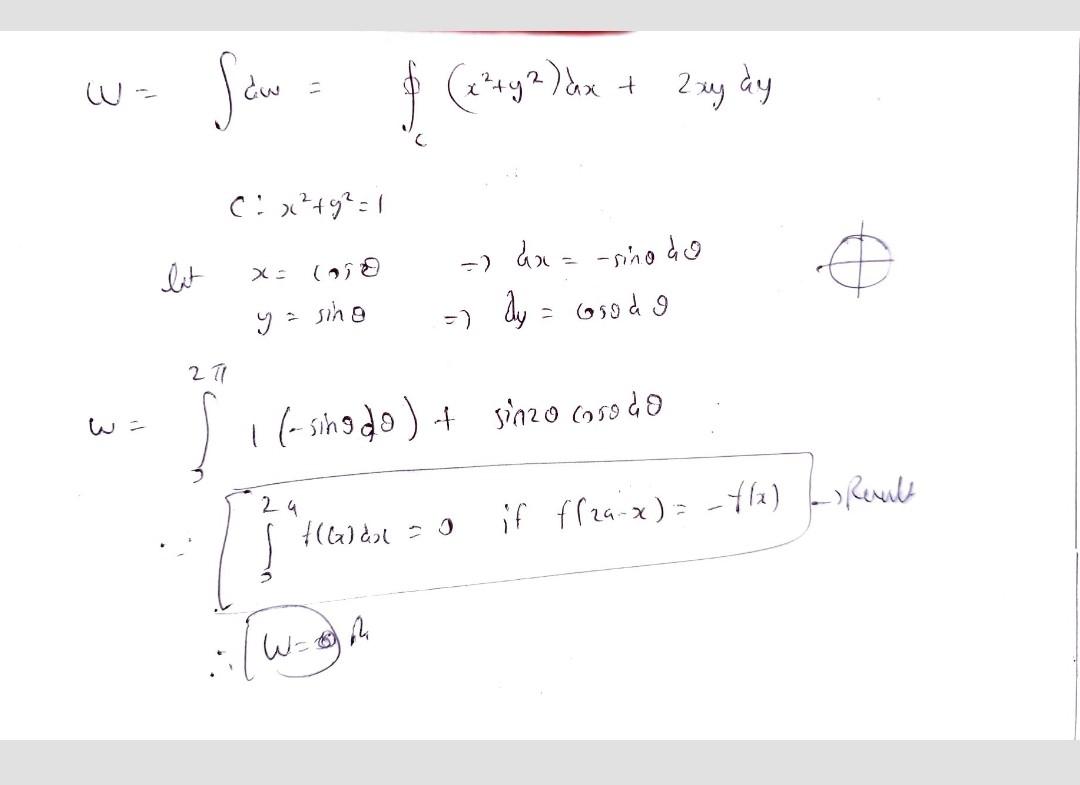 W = ∫dw = ∮_C (x²+y²)dx + 2xy dy
C: x²+y²=1
let x = cosθ => dx = -sinθ dθ
y = sinθ => dy = cosθ dθ
W = ∫_0^{2π} 1(-sinθdθ) + sin2θ cosθdθ
∵ [∫_0^{2a} f(x)dx = 0 if f(2a-x) = -f(x)] → Result
∴ W=0